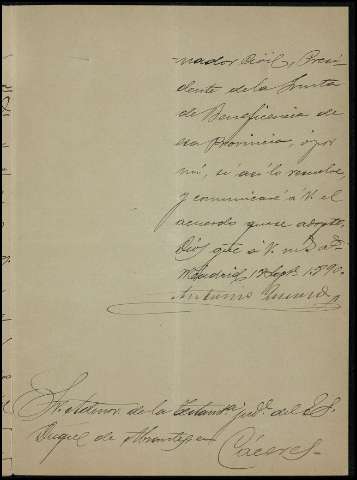 nador Civil, Presi-
dente de la Junta
de Beneficencia de
esa Provincia, ó por
mí, si así lo resuelve,
y comunicaré á V. el
acuerdo que se adopte.
Dios gue á V. ms. as.
Madrid 1º Sept. 1890.
Antonio
Sr. Admor. de la Testamª jud. del E. S.
Duque de Abrantes en
Cáceres.